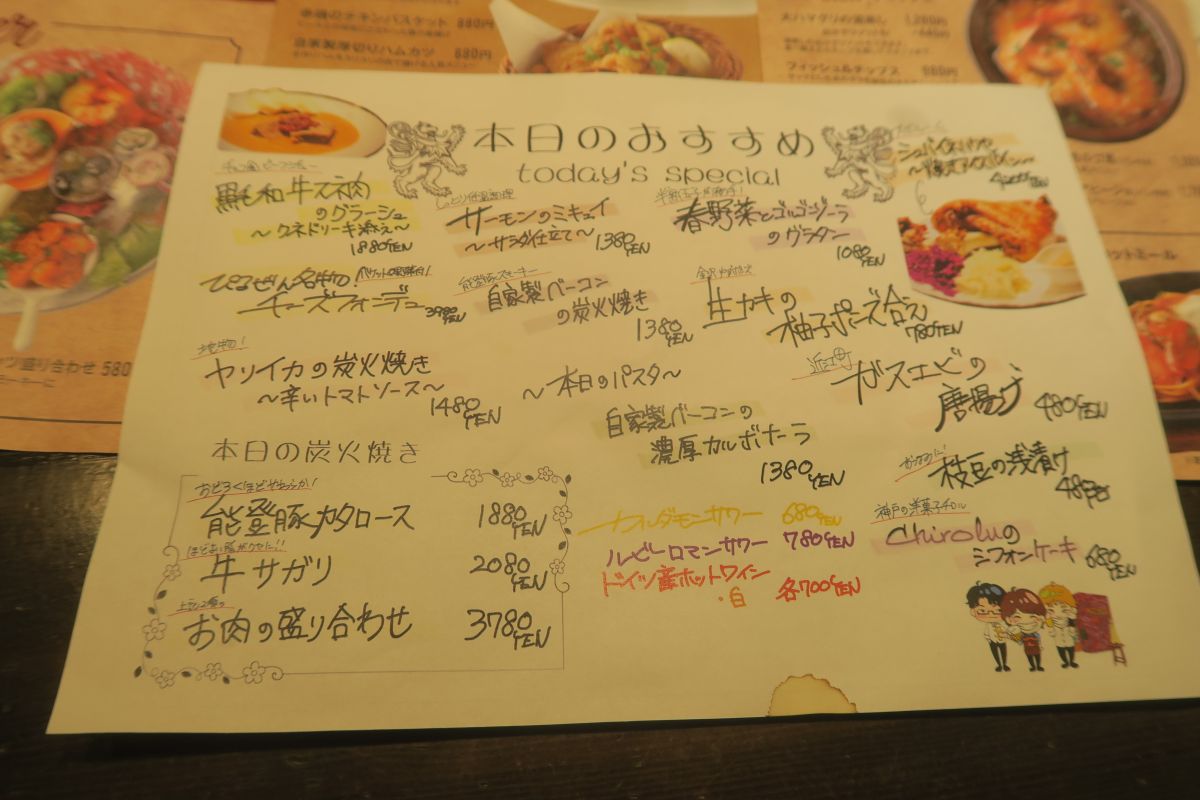 880円
自家製厚切りハムカツ 880円
大ハマグリの酒蒸し 1,280円
フィッシュ&チップス 880円
盛り合わせ 580
本日のおすすめ
today's special
黒毛和牛スネ肉
のグラーシュ
～クネドリーキ添え～
1880YEN
ぴるぜん名物!
チーズフォンデュ
3980YEN
地物!
ヤリイカの炭火焼き
～辛いトマトソース～
1480YEN
しっとり低温調理
サーモンのミキュイ
～サラダ仕立て～ 1380YEN
能登豚スモーキー
自家製ベーコン
の炭火焼き
1380YEN
～本日のパスタ～
自家製ベーコンの
濃厚カルボナーラ
1380YEN
春野菜とゴルゴンゾーラ
のグラタン
1080YEN
生カキの
柚子ポン酢合え
780YEN
近江町
ガスエビの
唐揚げ 480YEN
枝豆の浅漬け
480YEN
神戸の洋菓子
Chiroluの
シフォンケーキ 680YEN
本日の炭火焼き
おどろくほどやわらかい!
能登豚カタロース 1880YEN
牛サガリ 2080YEN
お肉の盛り合わせ 3780YEN
カルダモンサワー 680YEN
ルビーロマンサワー 780YEN
ドイツ産ホットワイン
・白 各700YEN